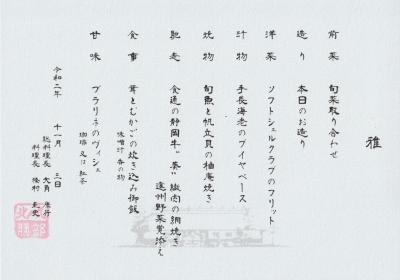 雅
前菜 旬菜取り合わせ
造り 本日のお造り
洋菜 ソフトシェルクラブのフリット
汁物 手長海老のブイヤベース
焼物 旬魚と帆立貝の柚庵焼き
馳走 食通の静岡牛"葵" 繊肉の網焼き
遠州野菜覚添え
食事 茸とむかごの炊き込み御飯
味噌汁 香の物
甘味 プラリネのヴィシェ
珈琲 又は 紅茶
令和二年 十一月 三日
総料理長
料理長